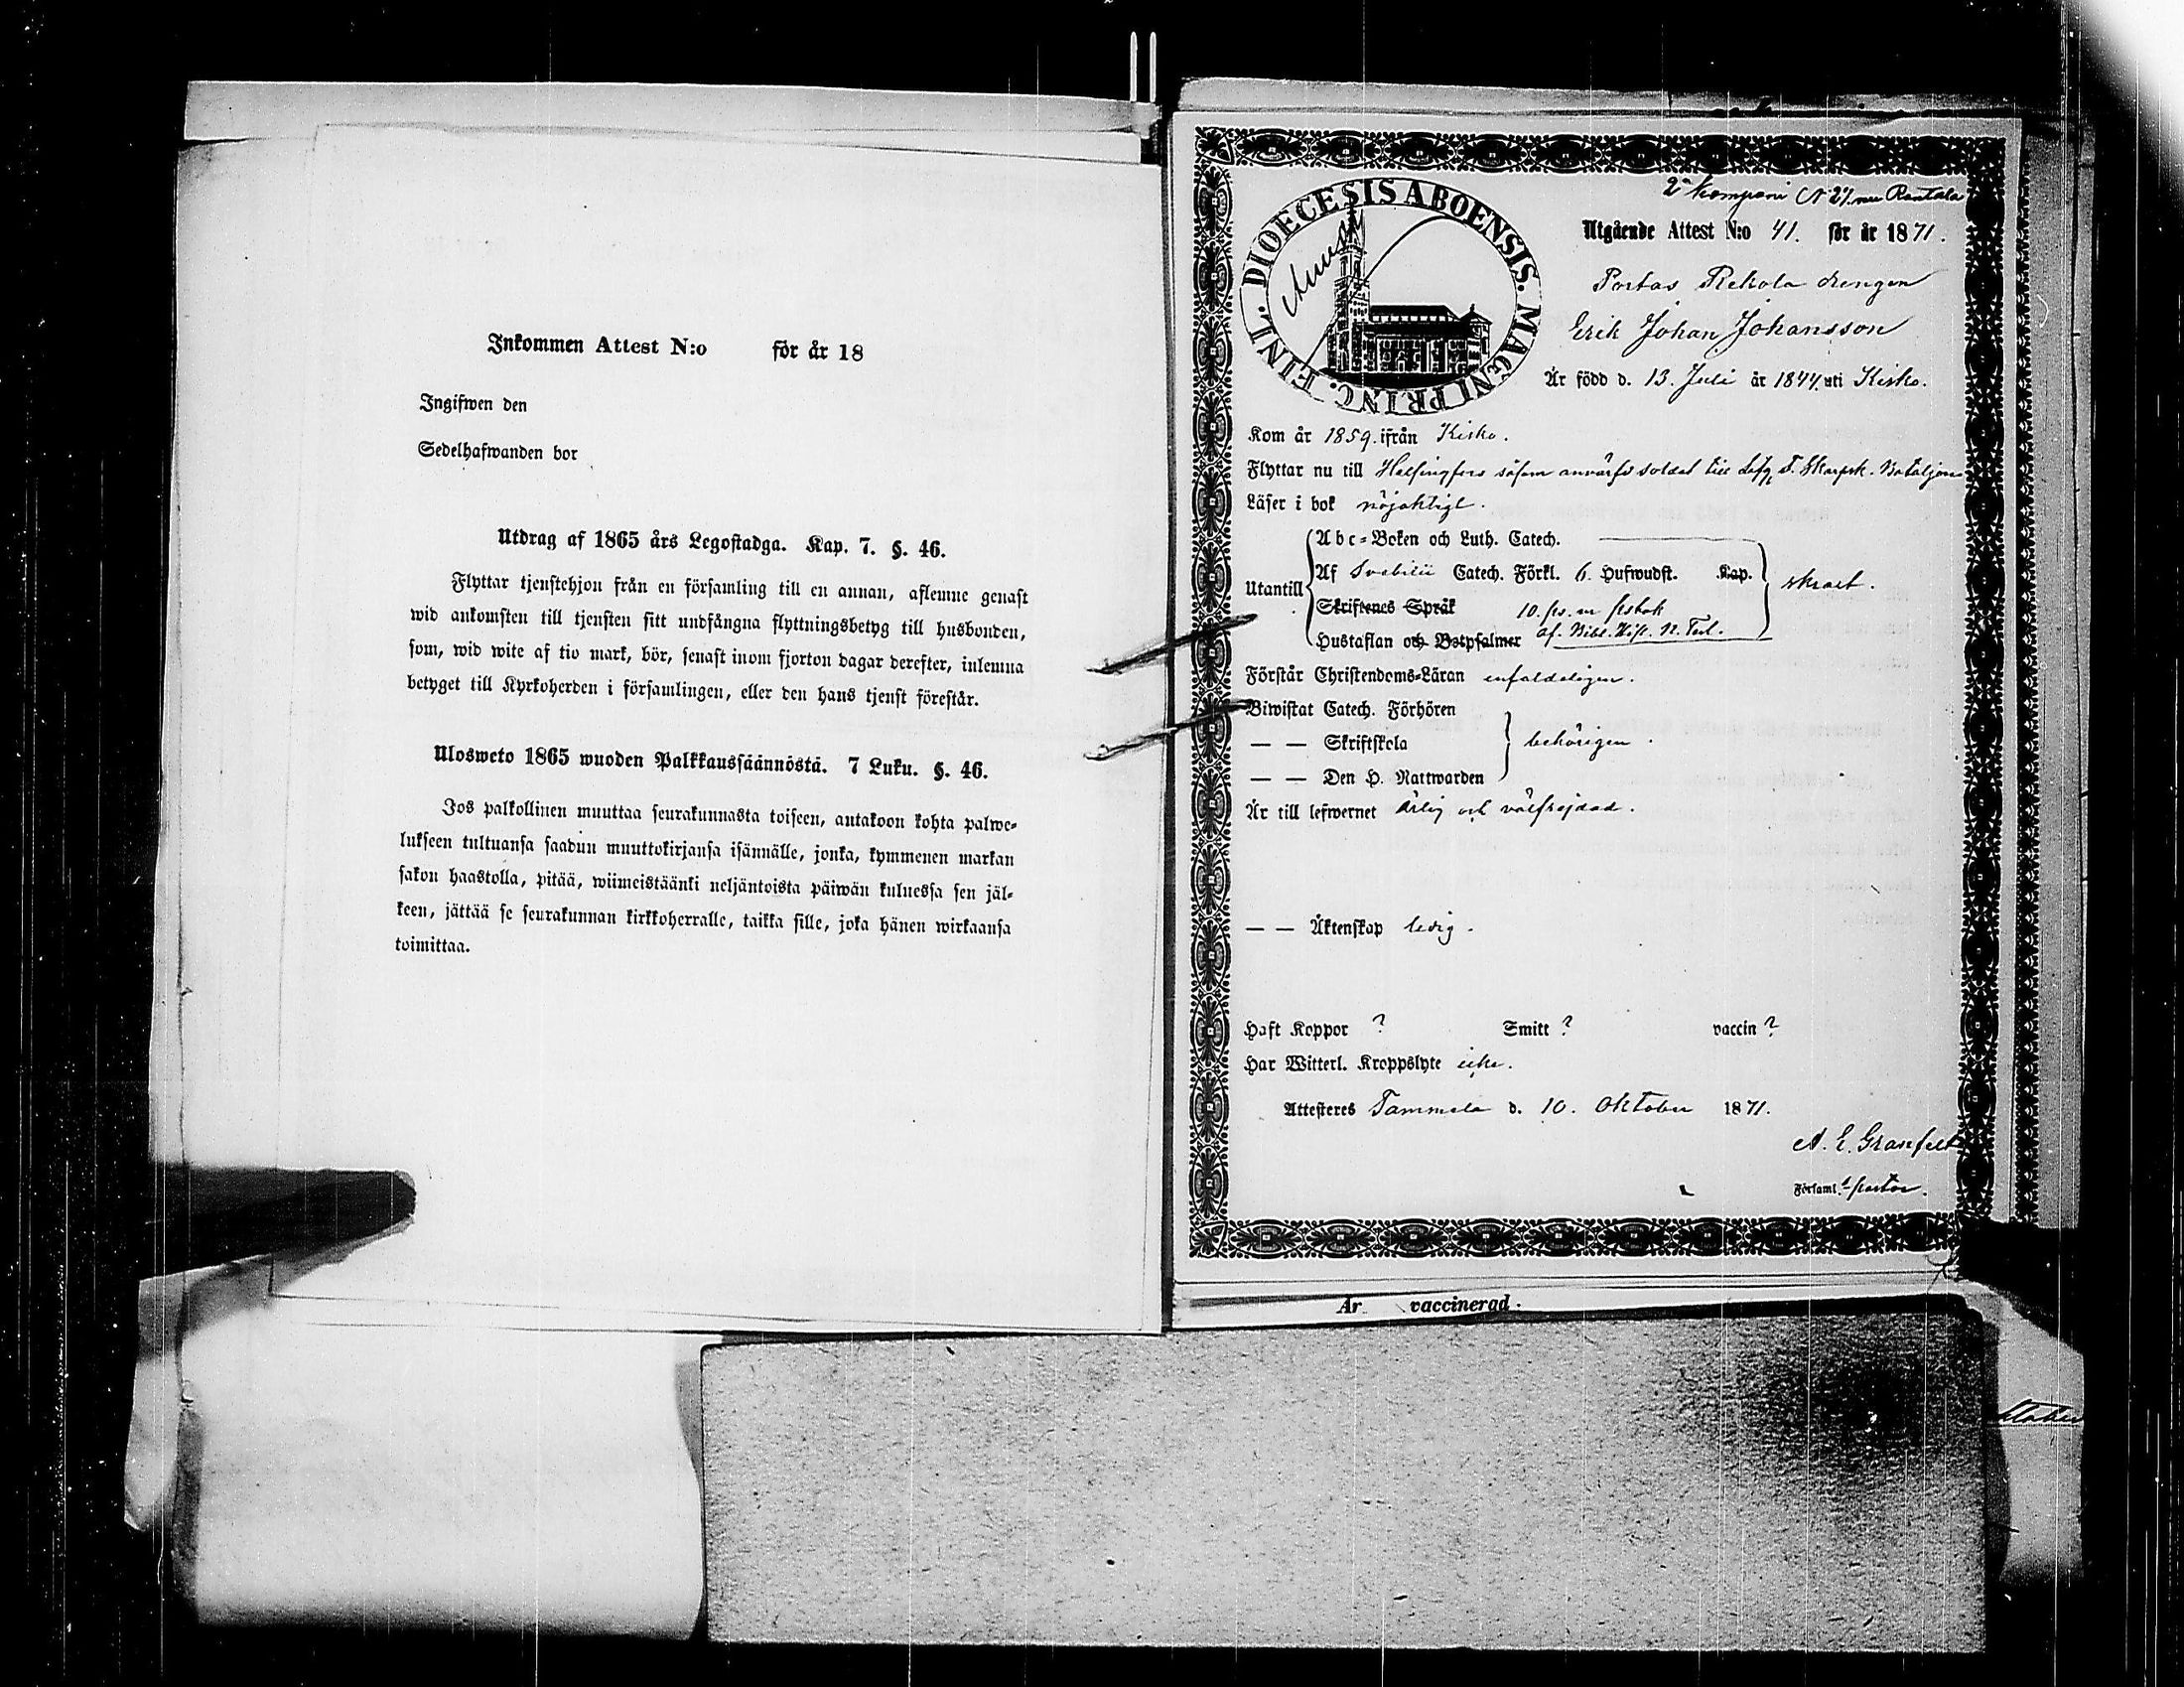 Inkommen Attest N:o för år 18
Ingifwen den
Sedelhafwanden bor
Utdrag af 1865 års Legostadga. Kap. 7. §. 46.
Flyttar tjenstehjon från en församling till en annan, aflemne genast
wid ankomsten till tjensten sitt undfångna flyttningsbetyg till husbonden,
som, wid wite af tio mark, bör, senast inom fjorton dagar derefter, inlemna
betyget till Kyrkoherden i församlingen, eller den hans tjenst förestår.
Ulosweto 1865 wuoden Palkkaussäännöstä. 7 Luku. §. 46.
Jos palkollinen muuttaa seurakunnasta toiseen, antakoon kohta palwe-
lukseen tultuansa saadun muuttokirjansa isännälle, jonka, kymmenen markan
sakon haastolla, pitää, wiimeistäänki neljäntoista päiwän kuluessa sen jäl-
keen, jättää se seurakunnan kirkkoherralle, taikka sille, joka hänen wirkaansa
toimittaa.
2a Kompani N 27. nu Rantala
DIOECESIS ABOENSIS. MAGNI PRINC. FINL.
Utgående Attest N:o 41. för år 1871.
Portas Rekola drengen
Erik Johan Johansson
Är född d. 13. Juli år 1844. uti Kisko.
Kom år 1859. ifrån Kisko.
Flyttar nu till Helsingfors såsom anvärfd soldat till Lifg. F. Skarpsk. Bataljon
Läser i bok nöjaktigt.
Abc-Boken och Luth. Catech.
Utantill Af Svebilii Catech. Förkl. 6. Hufwudst. Kap. svart.
Skriftenes Språk 10. ps. ur psbok
Hustaflan och Botpsalmer af. Bibl. Hist. N. Test.
Förstår Christendoms-Läran enfaldeligen.
Biwistat Catech. Förhören
— — Skriftskola behörigen.
— — Den H. Nattwarden
Är till lefwernet ärlig och välfrejdad.
— — Äktenskap ledig.
Haft Koppor ? Smitt ? vaccin ?
Har Witterl. Kroppslyte icke.
Attesteres Tammela d. 10. Oktober 1871.
A. E. Granfelt
Församl. pastor.
Är vaccinerad.